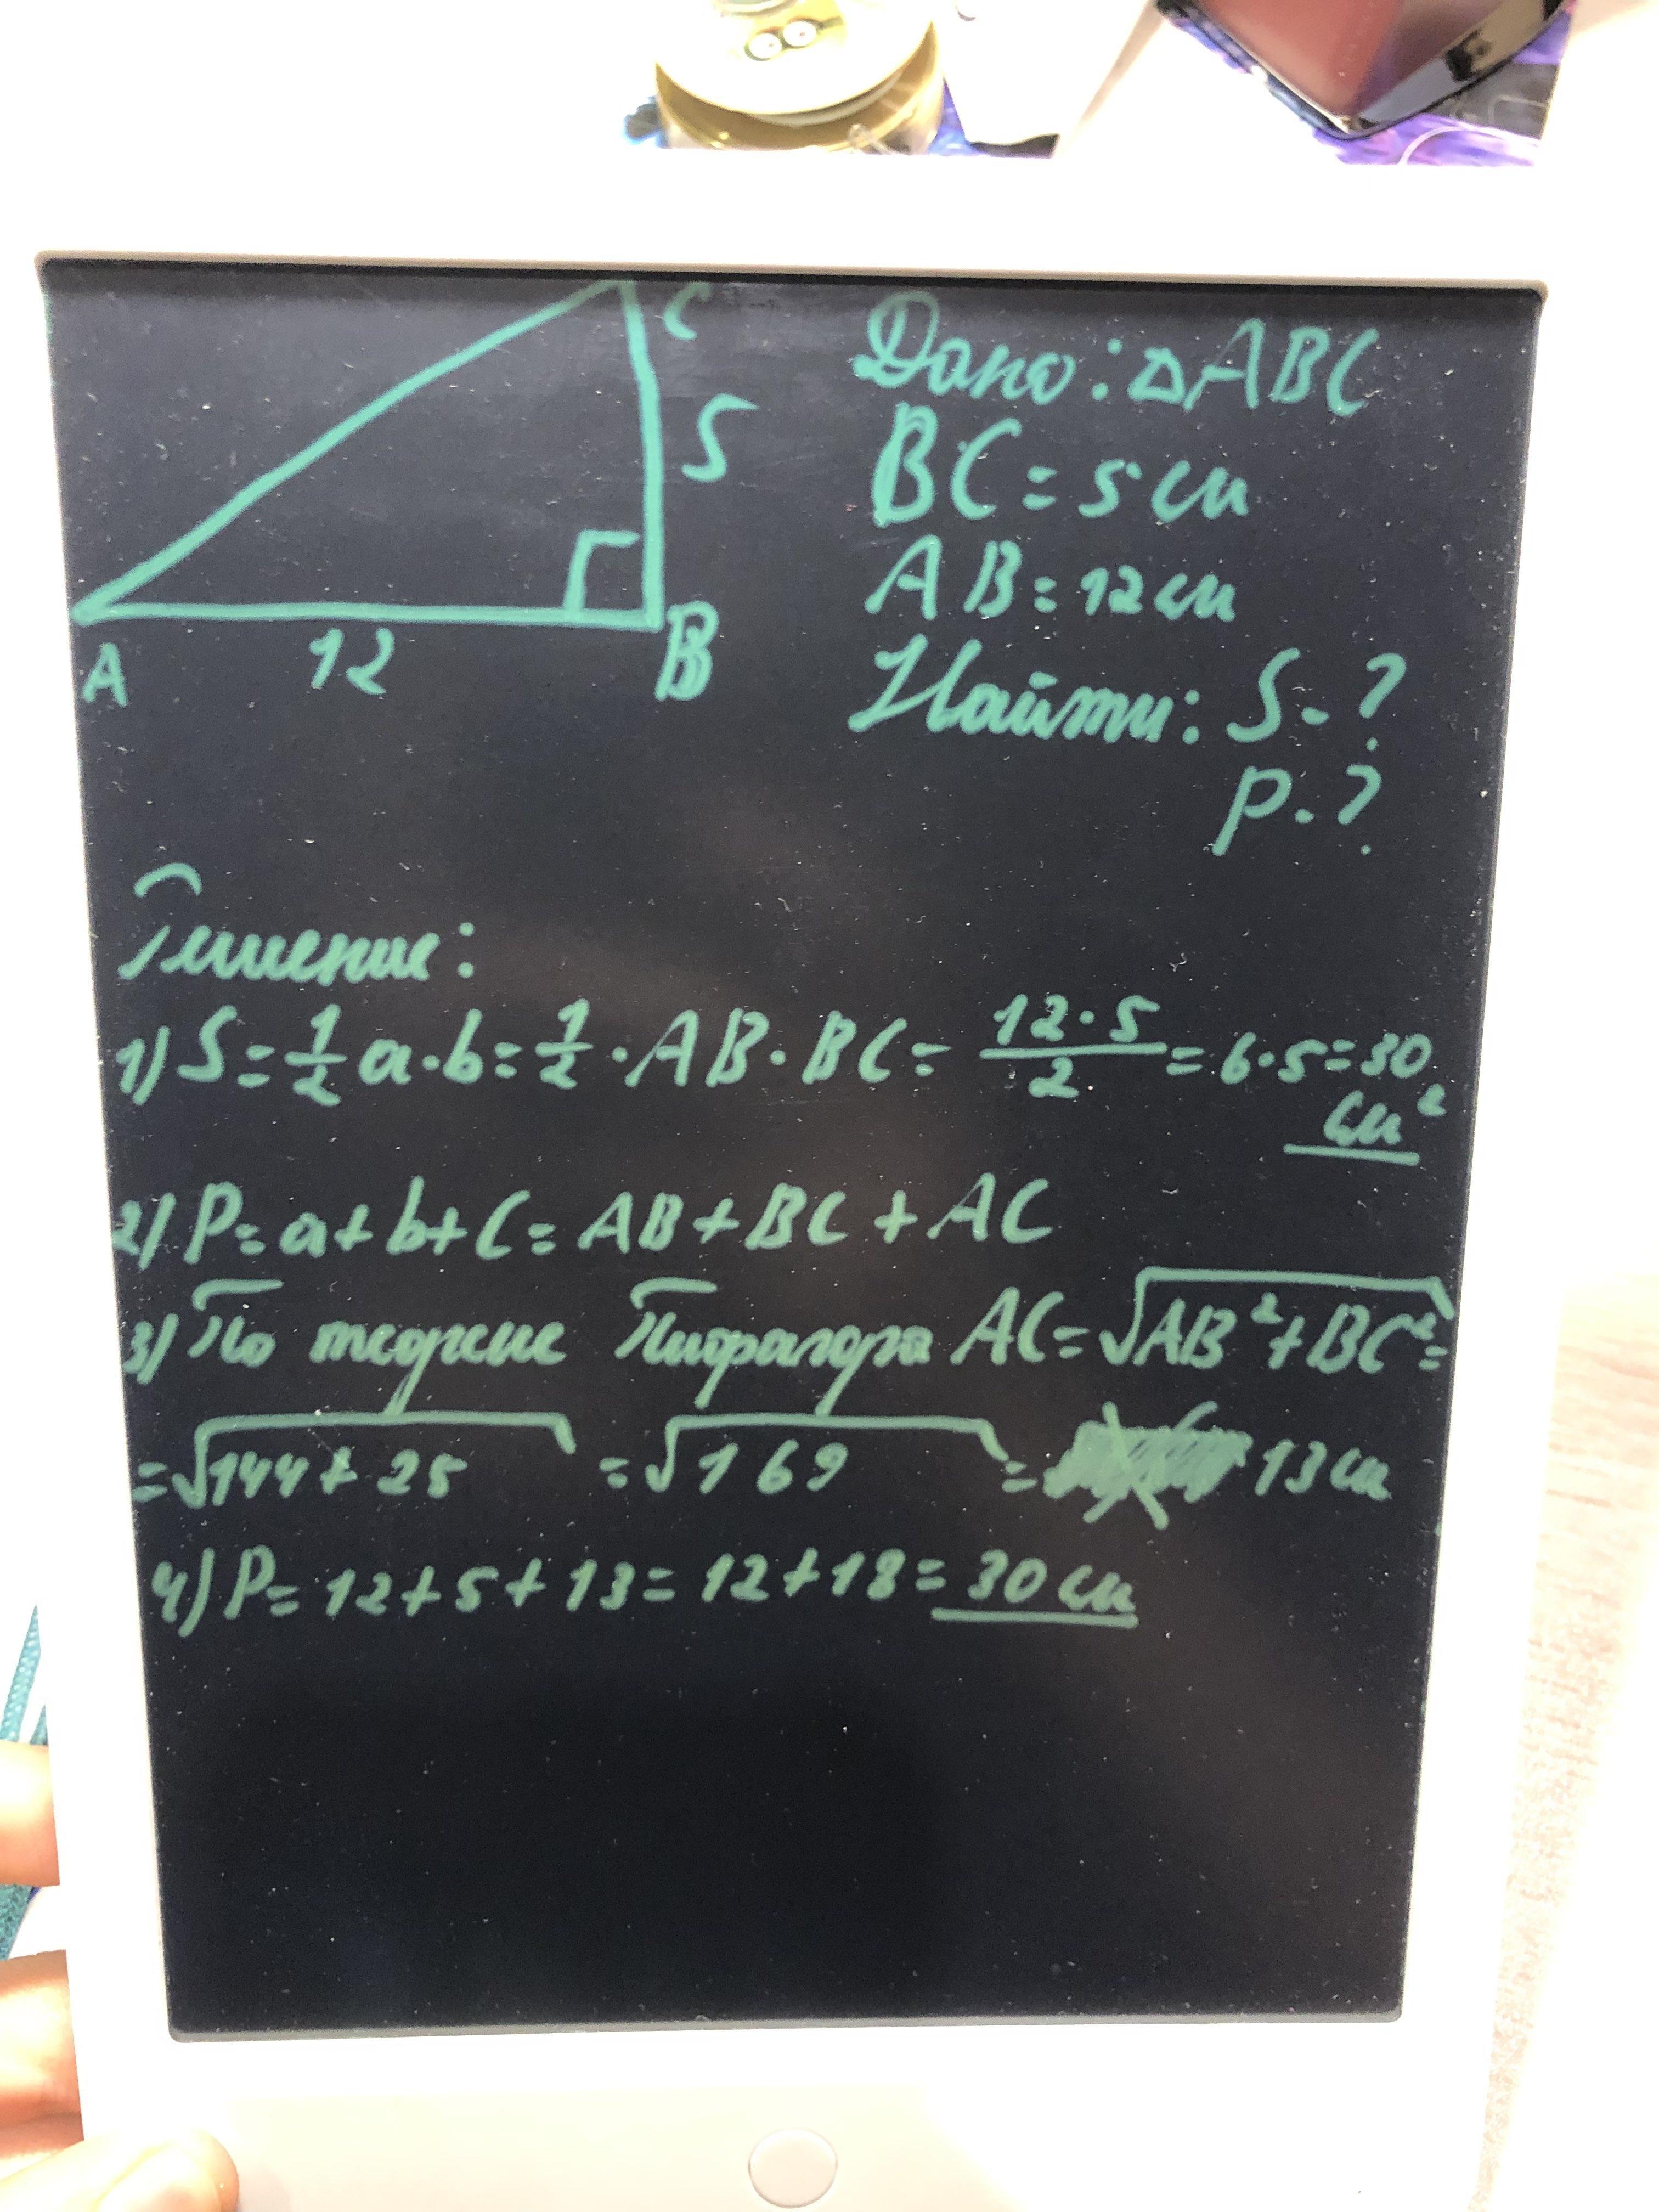 C
5
A
12
B
Дано: △ABC
BC = 5 см
AB = 12 см
Найти: S - ?
P - ?
Решение:
1) S = 1/2 a · b = 1/2 · AB · BC = 12 · 5 / 2 = 6 · 5 = 30
см²
2) P = a + b + c = AB + BC + AC
3) По теореме Пифагора AC = √AB² + BC² =
= √144 + 25 = √169 = 13 см
4) P = 12 + 5 + 13 = 12 + 18 = 30 см